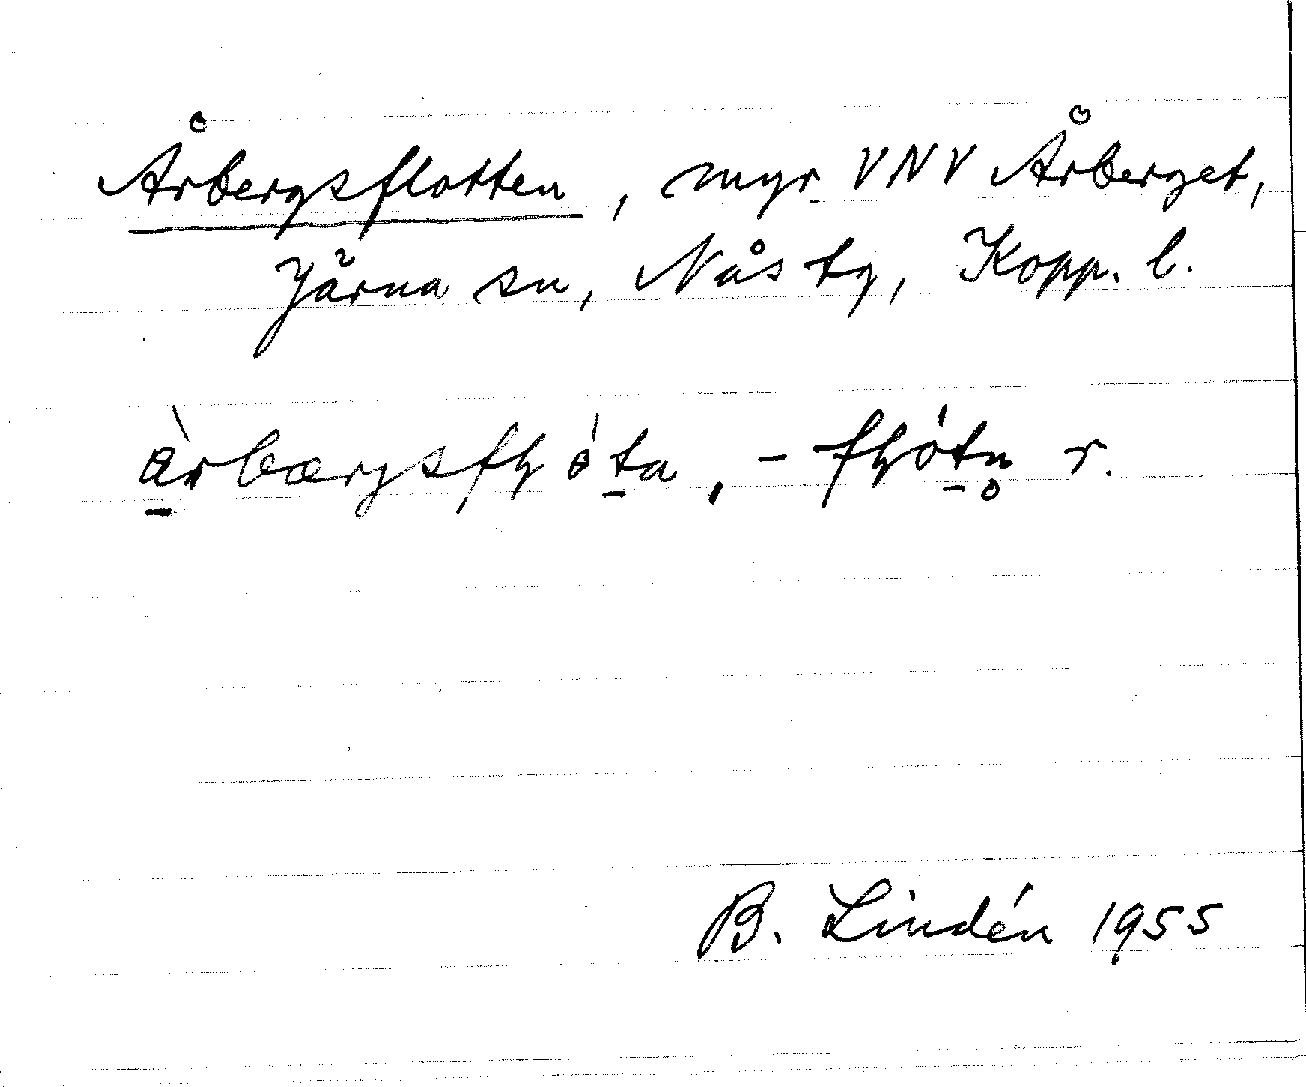 Årbergsflotten, myr VNV Årberget,
Järna sn, Nås tg, Kopp. l.
àrbærgsfɧóta, -fɧótn̥ r.
B. Lindén 1955